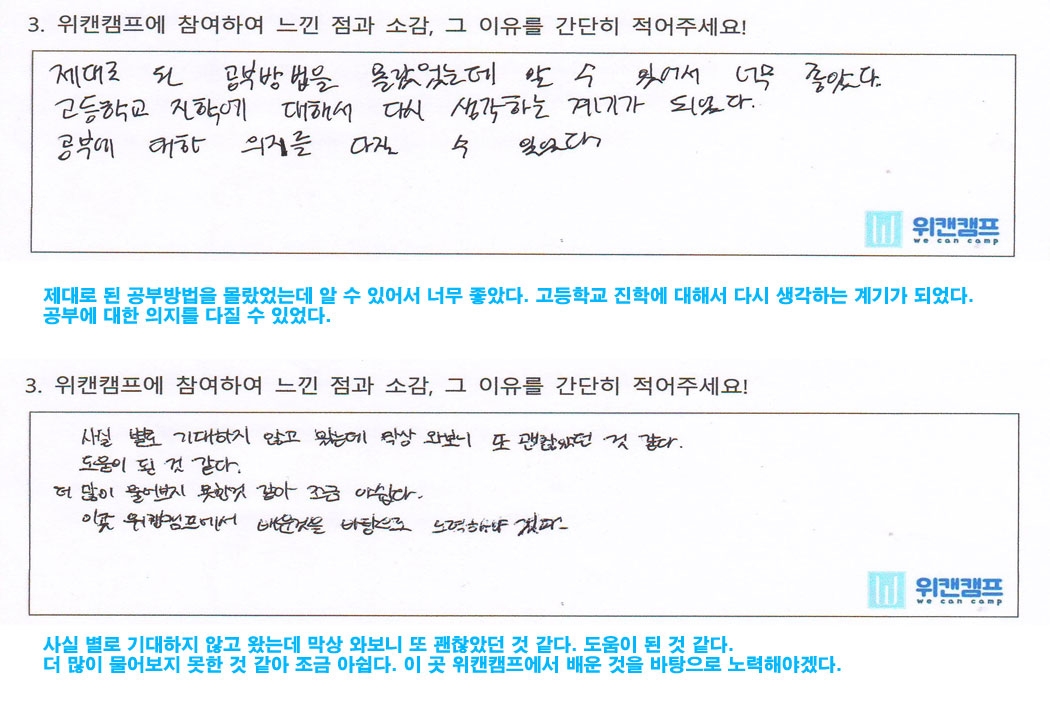 3. 위캔캠프에 참여하여 느낀 점과 소감, 그 이유를 간단히 적어주세요!
제대로 된 공부방법을 몰랐었는데 알 수 있어서 너무 좋았다.
고등학교 진학에 대해서 다시 생각하는 계기가 되었다.
공부에 대한 의지를 다질 수 있었다.
위캔캠프
we can camp
제대로 된 공부방법을 몰랐었는데 알 수 있어서 너무 좋았다. 고등학교 진학에 대해서 다시 생각하는 계기가 되었다.
공부에 대한 의지를 다질 수 있었다.
3. 위캔캠프에 참여하여 느낀 점과 소감, 그 이유를 간단히 적어주세요!
사실 별로 기대하지 않고 왔는데 막상 와보니 또 괜찮았던 것 같다.
도움이 된 것 같다.
더 많이 물어보지 못한것 같아 조금 아쉽다.
이곳 위캔캠프에서 배운것을 바탕으로 노력해야 겠다.
위캔캠프
we can camp
사실 별로 기대하지 않고 왔는데 막상 와보니 또 괜찮았던 것 같다. 도움이 된 것 같다.
더 많이 물어보지 못한 것 같아 조금 아쉽다. 이 곳 위캔캠프에서 배운 것을 바탕으로 노력해야겠다.